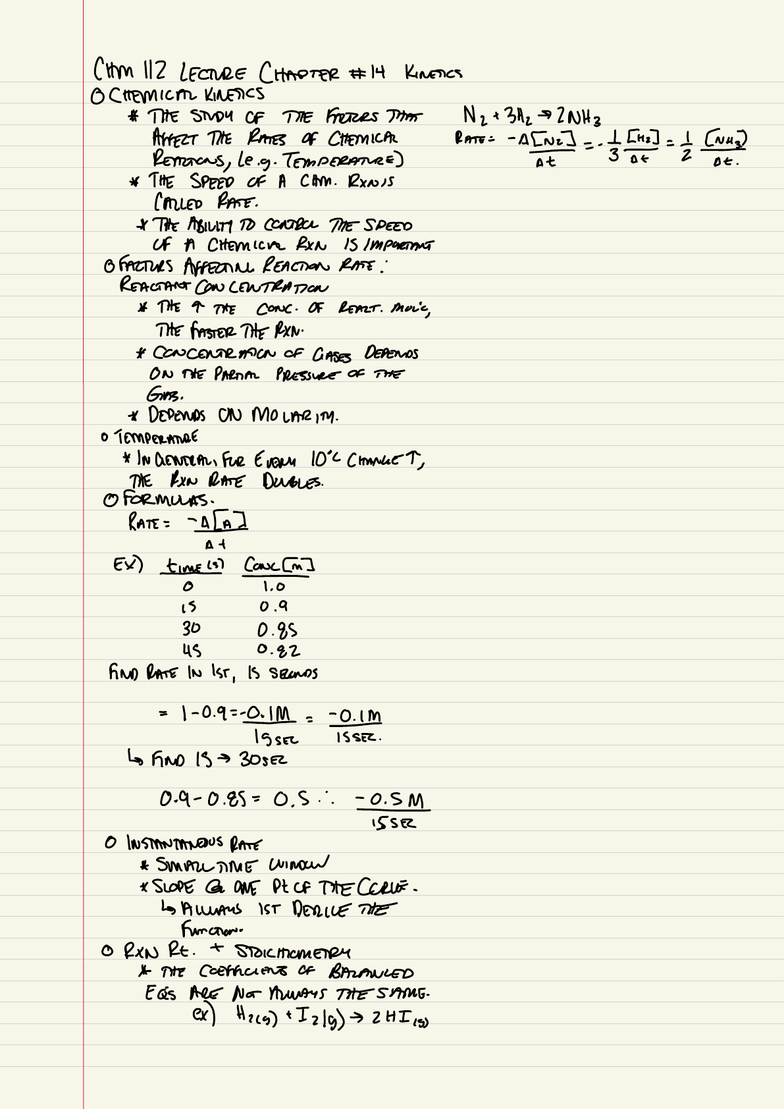 CHM 112 LECTURE CHAPTER #14 KINETICS
O CHEMICAL KINETICS
* THE STUDY OF THE FACTORS THAT
AFFECT THE RATES OF CHEMICAL
REACTIONS, (e.g. TEMPERATURE)
* THE SPEED OF A CHM. RXN IS
CALLED RATE.
* THE ABILITY TO CONTROL THE SPEED
OF A CHEMICAL RXN IS IMPORTANT
N₂ + 3H₂ → 2NH₃
RATE = -Δ[N₂]/Δt = -1/3 [H₂]/Δt = 1/2 [NH₃]/Δt.
O FACTORS AFFECTING REACTION RATE:
REACTANT CONCENTRATION
* THE ↑ THE CONC. OF REACT. MOLC,
THE FASTER THE RXN.
* CONCENTRATION OF GASES DEPENDS
ON THE PARTIAL PRESSURE OF THE
GAS.
* DEPENDS ON MOLARITY.
O TEMPERATURE
* IN GENERAL, FOR EVERY 10°C CHANGE ↑,
THE RXN RATE DOUBLES.
O FORMULAS.
RATE = -Δ[A]/Δt
EX) TIME (s) CONC [M]
0 1.0
15 0.9
30 0.85
45 0.82
FIND RATE IN 1ST, 15 SECONDS
= 1-0.9 = -0.1M/15 SEC = -0.1M/15 SEC.
↳ FIND 15 → 30 SEC
0.9-0.85 = 0.5 ∴ -0.5 M/15 SEC
O INSTANTANEOUS RATE
* SMALL TIME WINDOW
* SLOPE @ ONE Pt OF THE CURVE.
↳ ALWAYS 1ST DERIVE THE
FUNCTION.
O RXN Rt. + STOICHIOMETRY
* THE COEFFICIENTS OF BALANCED
EQS ARE NOT ALWAYS THE SAME.
ex) H₂(g) + I₂(g) → 2HI(g)